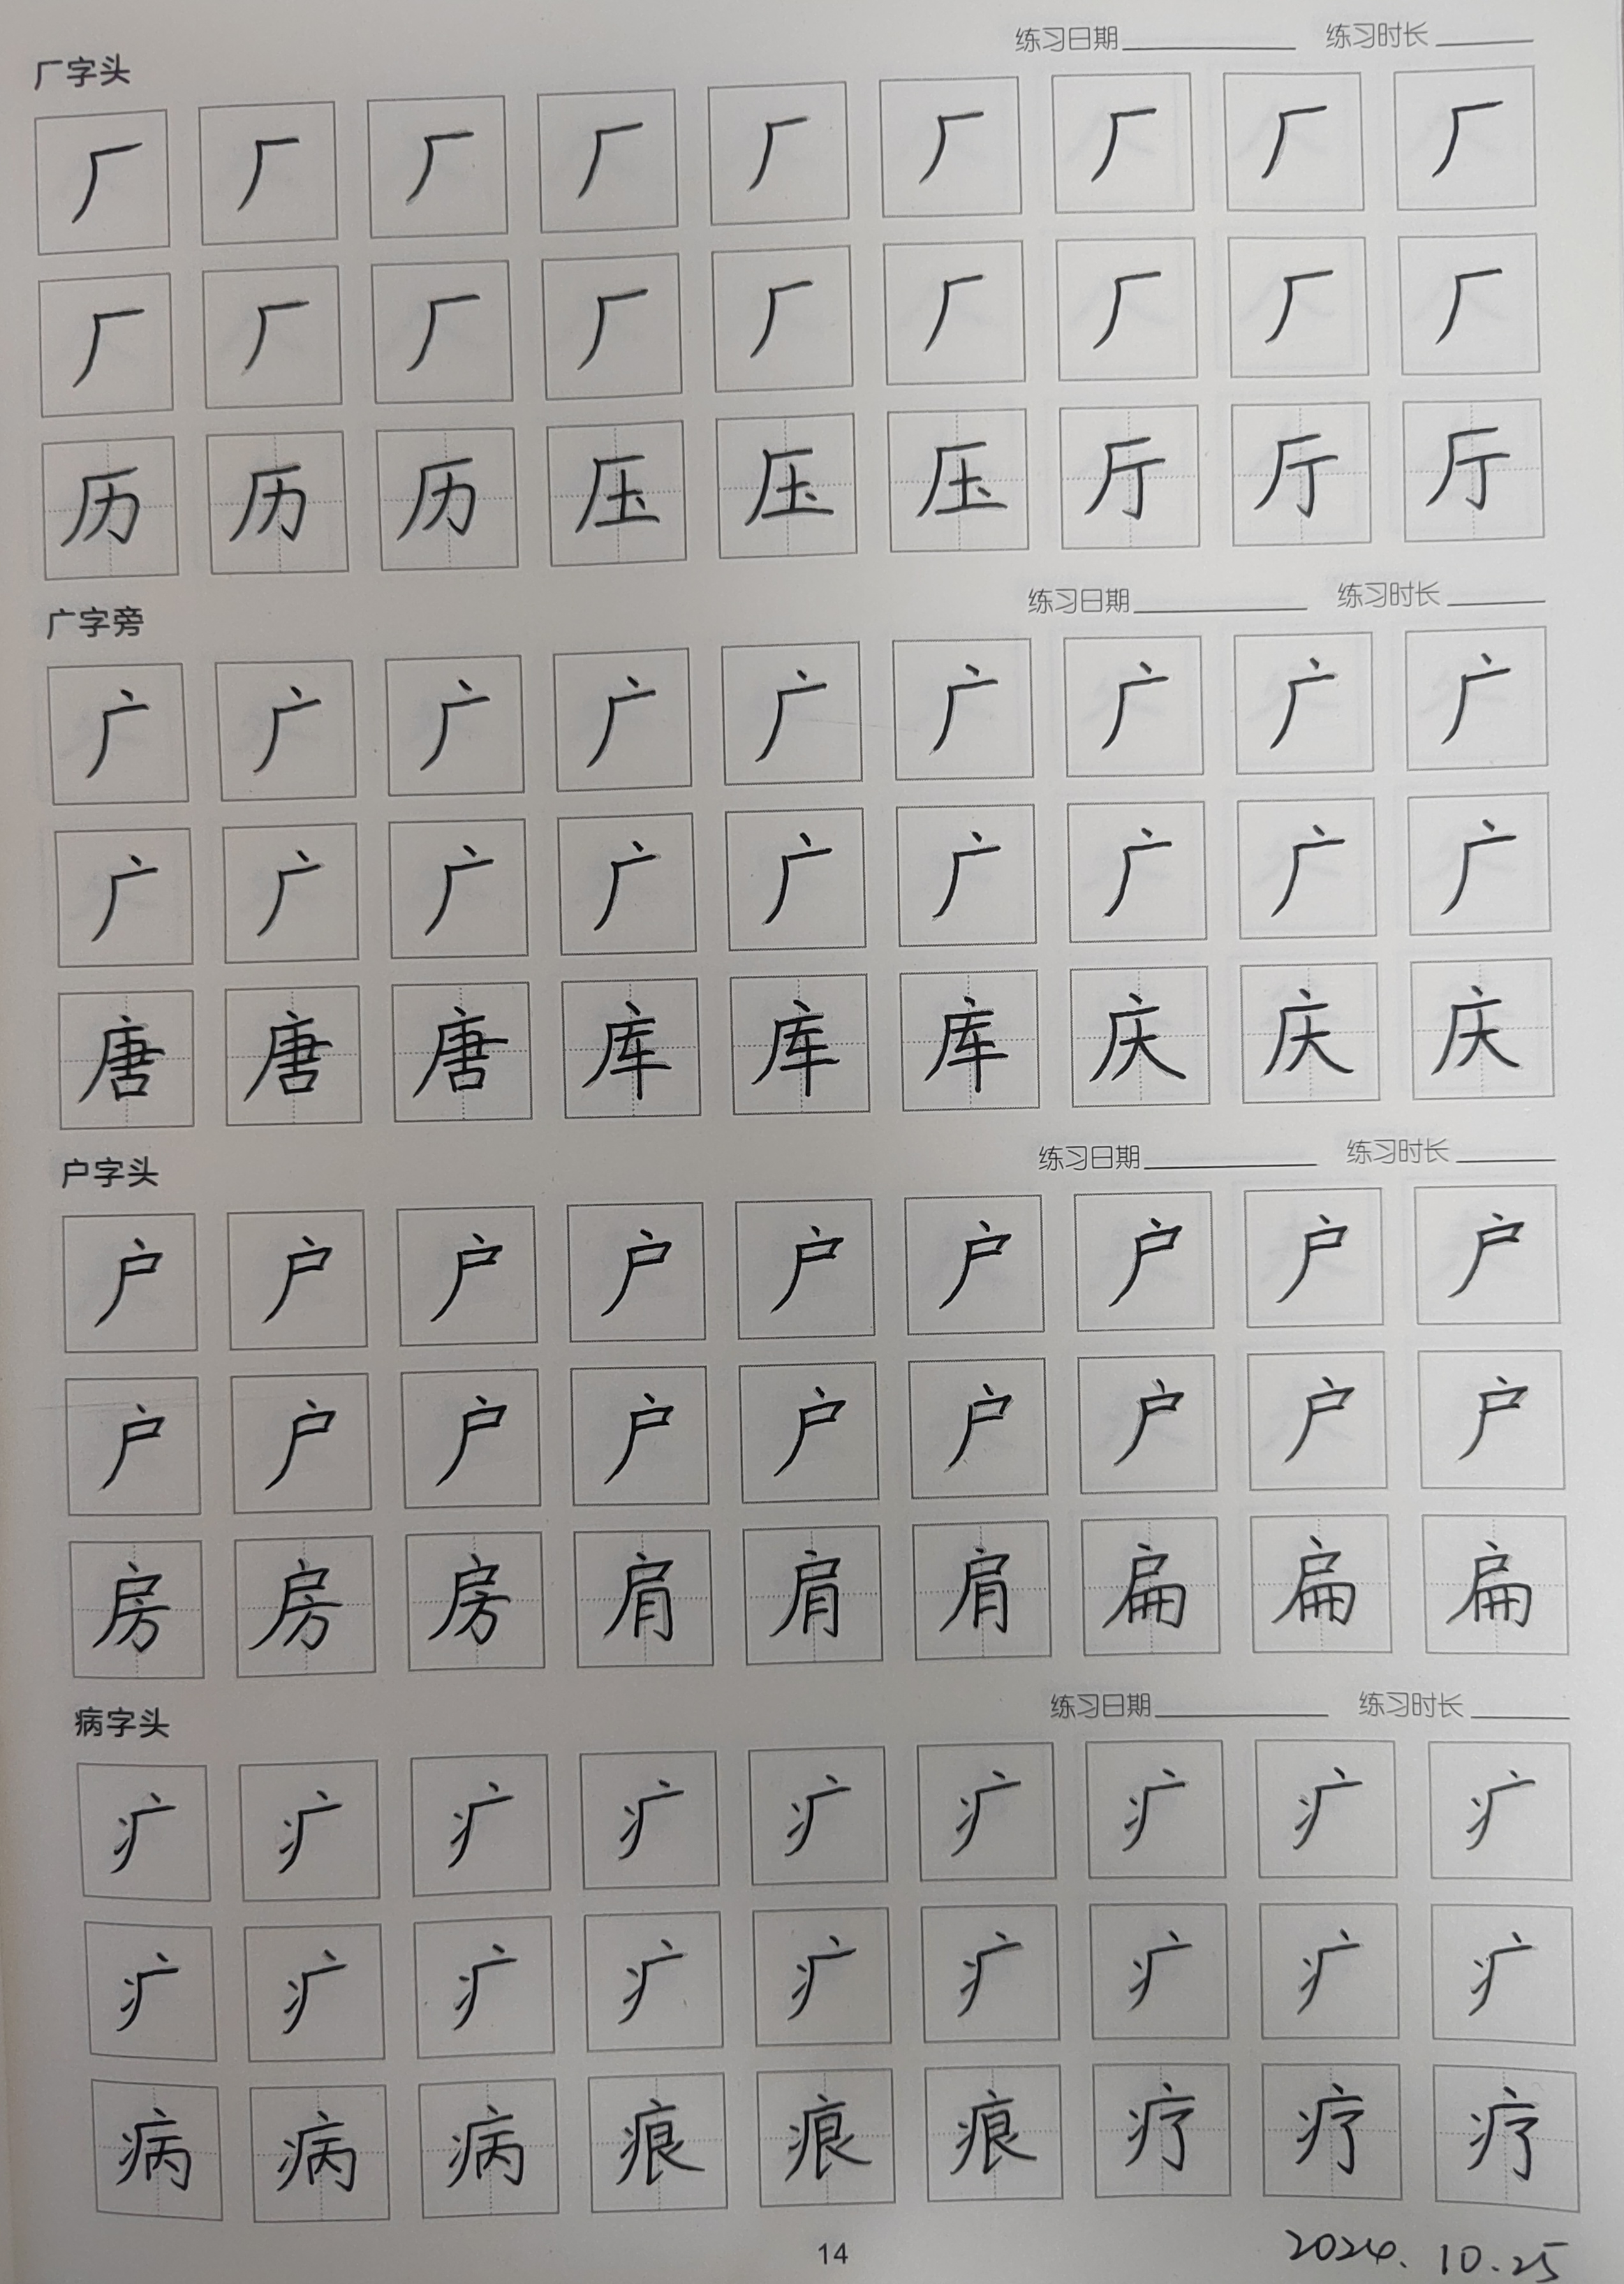 练习日期 练习时长
厂字头
厂 厂 厂 厂 厂 厂 厂 厂 厂
厂 厂 厂 厂 厂 厂 厂 厂 厂
历 历 历 压 压 压 厅 厅 厅
广字旁 练习日期 练习时长
广 广 广 广 广 广 广 广 广
广 广 广 广 广 广 广 广 广
唐 唐 唐 库 库 库 庆 庆 庆
户字头 练习日期 练习时长
户 户 户 户 户 户 户 户 户
户 户 户 户 户 户 户 户 户
房 房 房 肩 肩 肩 扁 扁 扁
病字头 练习日期 练习时长
疒 疒 疒 疒 疒 疒 疒 疒 疒
疒 疒 疒 疒 疒 疒 疒 疒 疒
病 病 病 痕 痕 痕 疗 疗 疗
14 2024.10.25